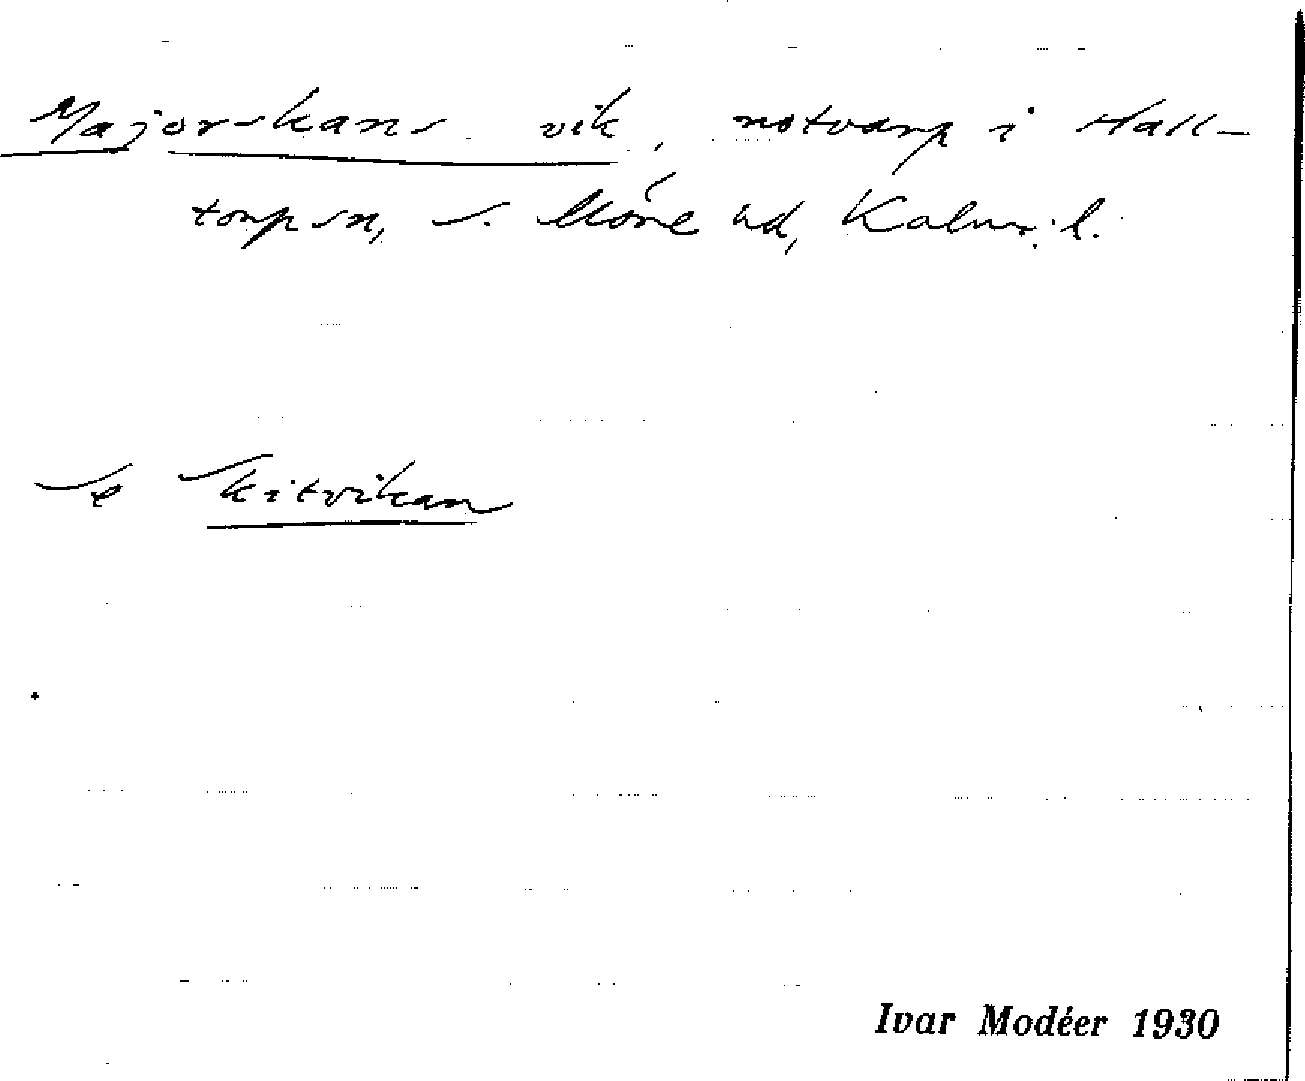 Majorskans vik, notvarp i Hall-
torp sn, S. Möre hd, Kalm. l.
Se Skitvikan
Ivar Modéer 1930